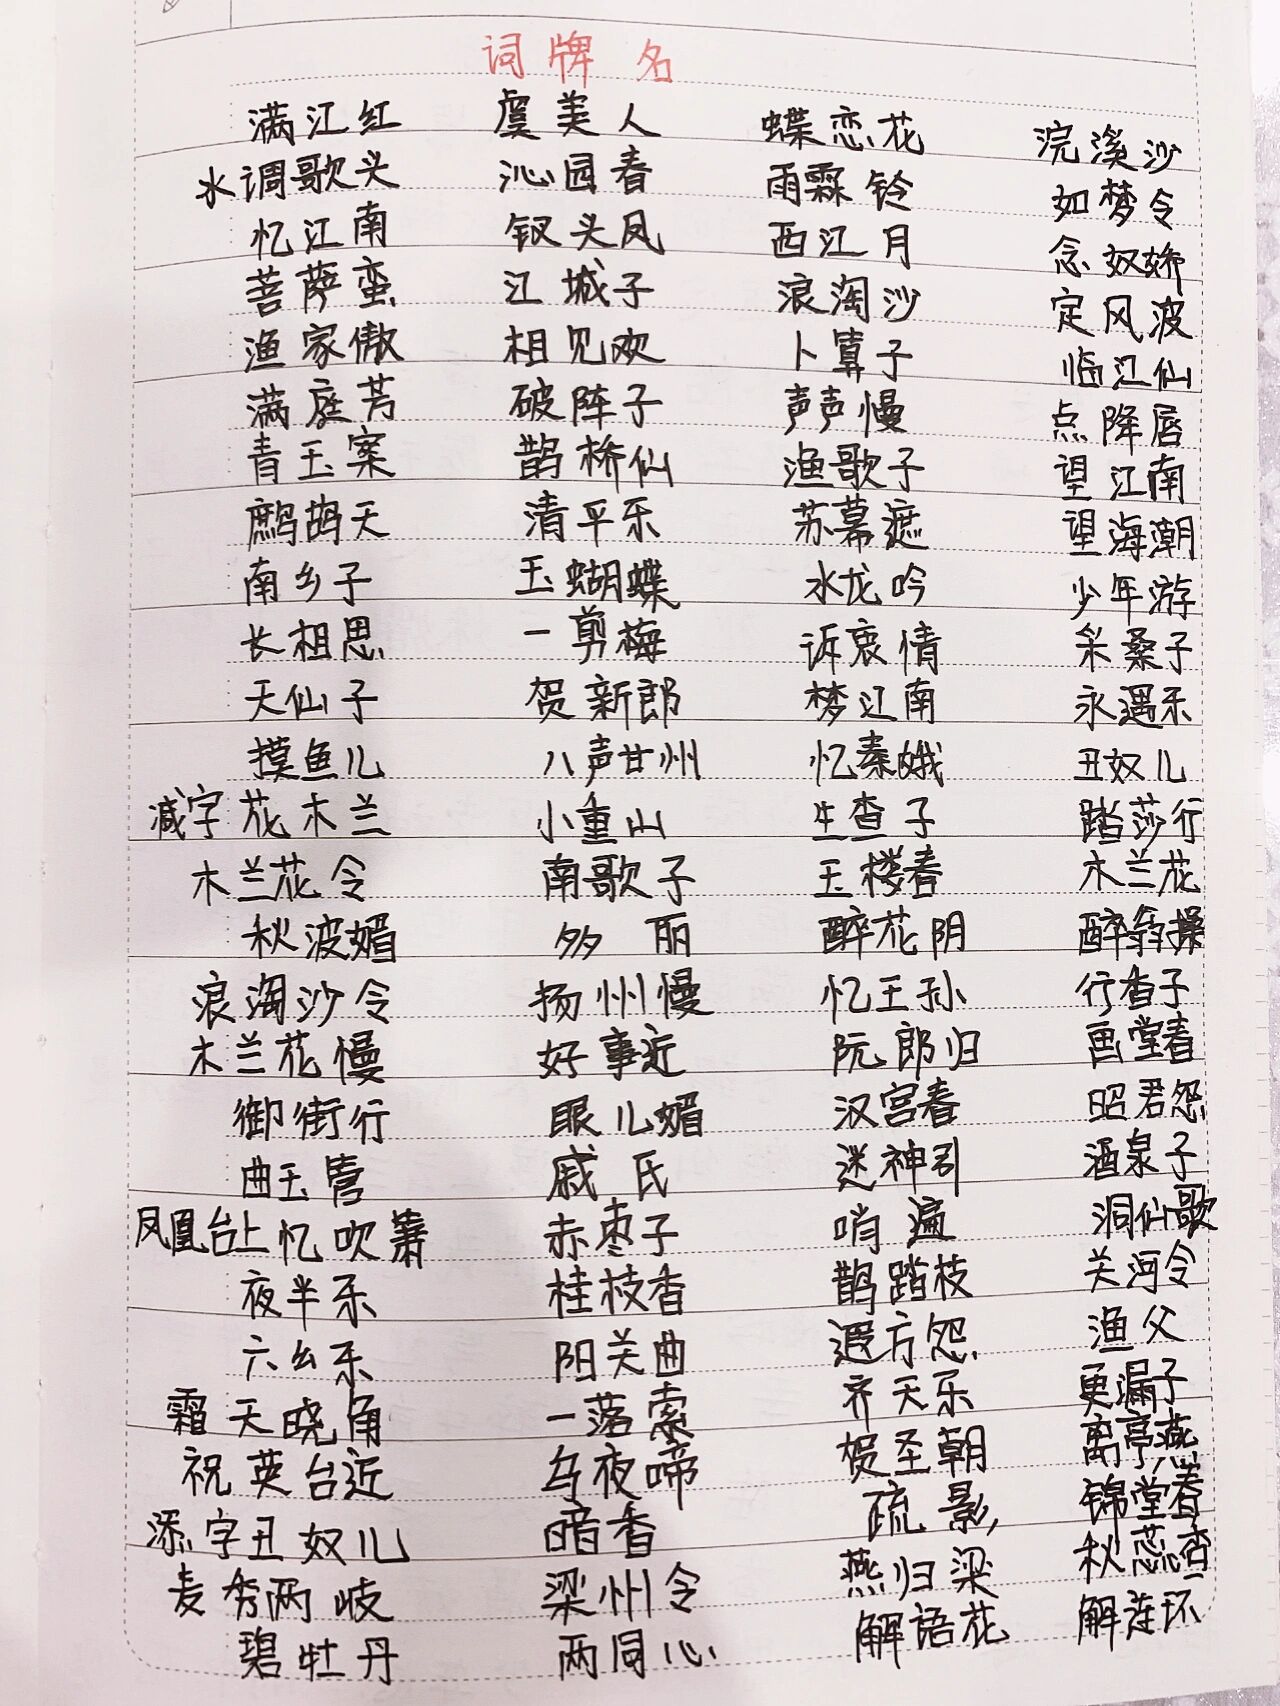 词牌名
满江红 虞美人 蝶恋花 浣溪沙
水调歌头 沁园春 雨霖铃 如梦令
忆江南 钗头凤 西江月 念奴娇
菩萨蛮 江城子 浪淘沙 定风波
渔家傲 相见欢 卜算子 临江仙
满庭芳 破阵子 声声慢 点降唇
青玉案 鹊桥仙 渔歌子 望江南
鹧鸪天 清平乐 苏幕遮 望海潮
南乡子 玉蝴蝶 水龙吟 少年游
长相思 一剪梅 诉衷情 采桑子
天仙子 贺新郎 梦江南 永遇乐
摸鱼儿 八声甘州 忆秦娥 丑奴儿
减字花木兰 小重山 生查子 踏莎行
木兰花令 南歌子 玉楼春 木兰花
秋波媚 多丽 醉花阴 醉翁操
浪淘沙令 扬州慢 忆王孙 行香子
木兰花慢 好事近 阮郎归 画堂春
御街行 眼儿媚 汉宫春 昭君怨
曲玉管 戚氏 迷神引 酒泉子
凤凰台上忆吹箫 赤枣子 哨遍 洞仙歌
夜半乐 桂枝香 鹊踏枝 关河令
六幺乐 阳关曲 遐方怨 渔父
霜天晓角 一落索 齐天乐 更漏子
祝英台近 乌夜啼 贺圣朝 离亭燕
添字丑奴儿 暗香 疏影 锦堂春
麦秀两岐 梁州令 燕归梁 秋蕊香
碧牡丹 两同心 解语花 解连环